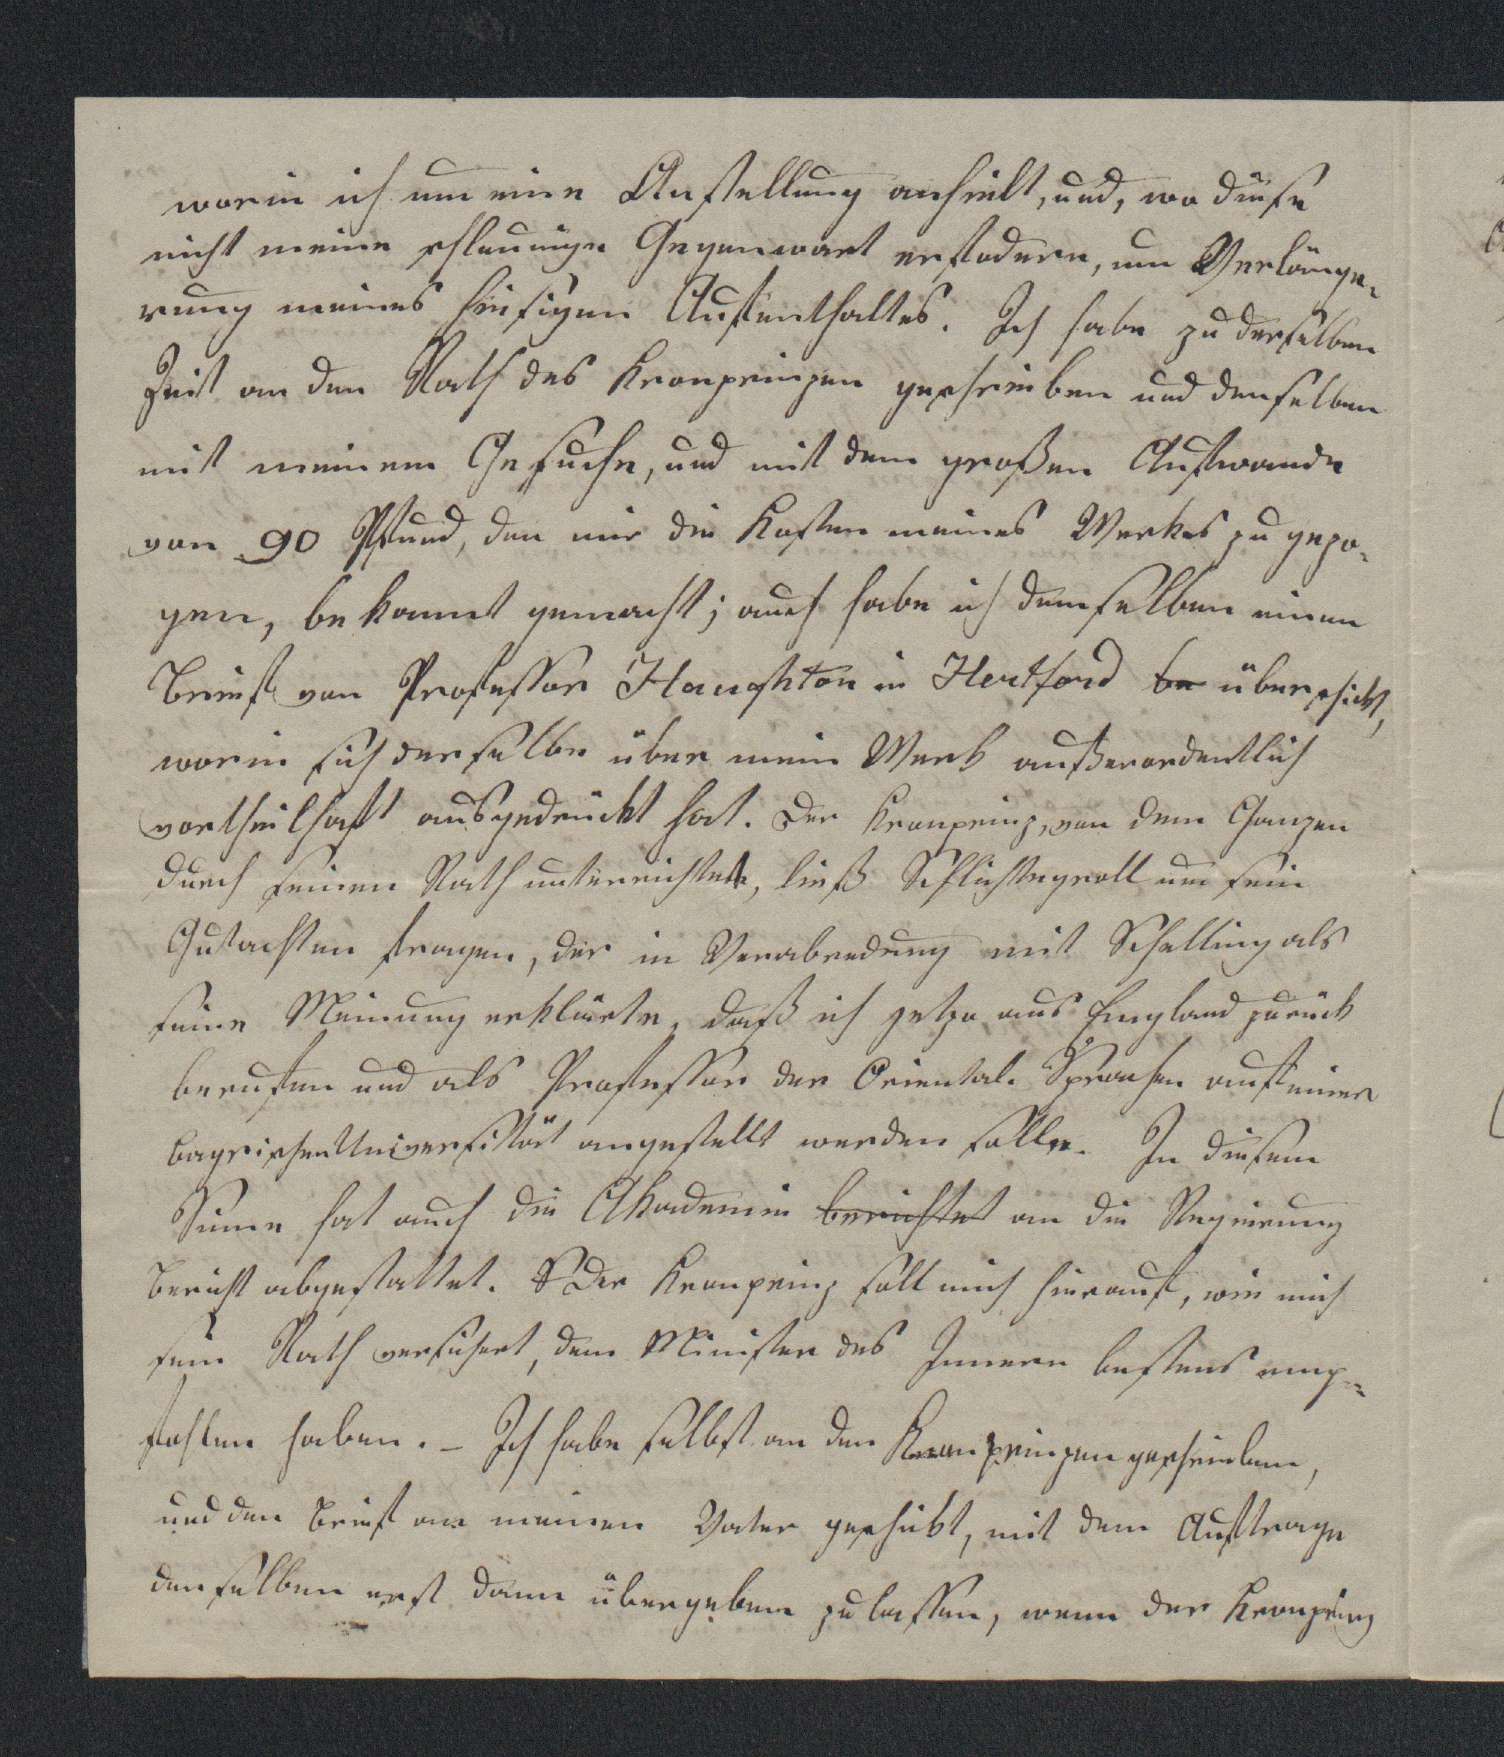 worin ich um eine Anstellung anhielt, und, wo diese
nicht meine schleunige Gegenwart erfodern, um Verlänge-
rung meines hiesigen Aufenthaltes. Ich habe zu derselben
Zeit an den Rath des Kronprinzen geschrieben und denselben
mit meinem Gesuche, und mit dem großen Aufwande
von 90 Pfund, den mir die Kosten meines Werkes zu gezo-
gen, bekannt gemacht; auch habe ich demselben einen
Brief von Professor Haughton in Hertford be überschickt,
worin sich derselbe über mein Werk außerordentlich
vortheilhaft ausgedrückt hat. Der Kronprinz, von dem Ganzen
durch seinen Rath unterrichtet, ließ Schlichtegroll um sein
Gutachten fragen, der in Verabredung mit Schelling als
seine Meinung erklärte, daß ich jetzo aus England zurück
berufen und als Professor der Oriental. Sprachen auf einer
bayrischen Universität angestellt werden solle. In diesem
Sinne hat auch die Akademie berichtet an die Regierung
Bericht abgestattet. S Der Kronprinz soll mich hierauf, wie mich
sein Rath versichert, dem Minister des Innern bestens emp-
fohlen haben. – Ich habe selbst an den Kronprinzen geschrieben,
und den Brief an meinen Vater geschickt, mit dem Auftrage
denselben erst dann übergeben zu lassen, wenn der Kronprinz